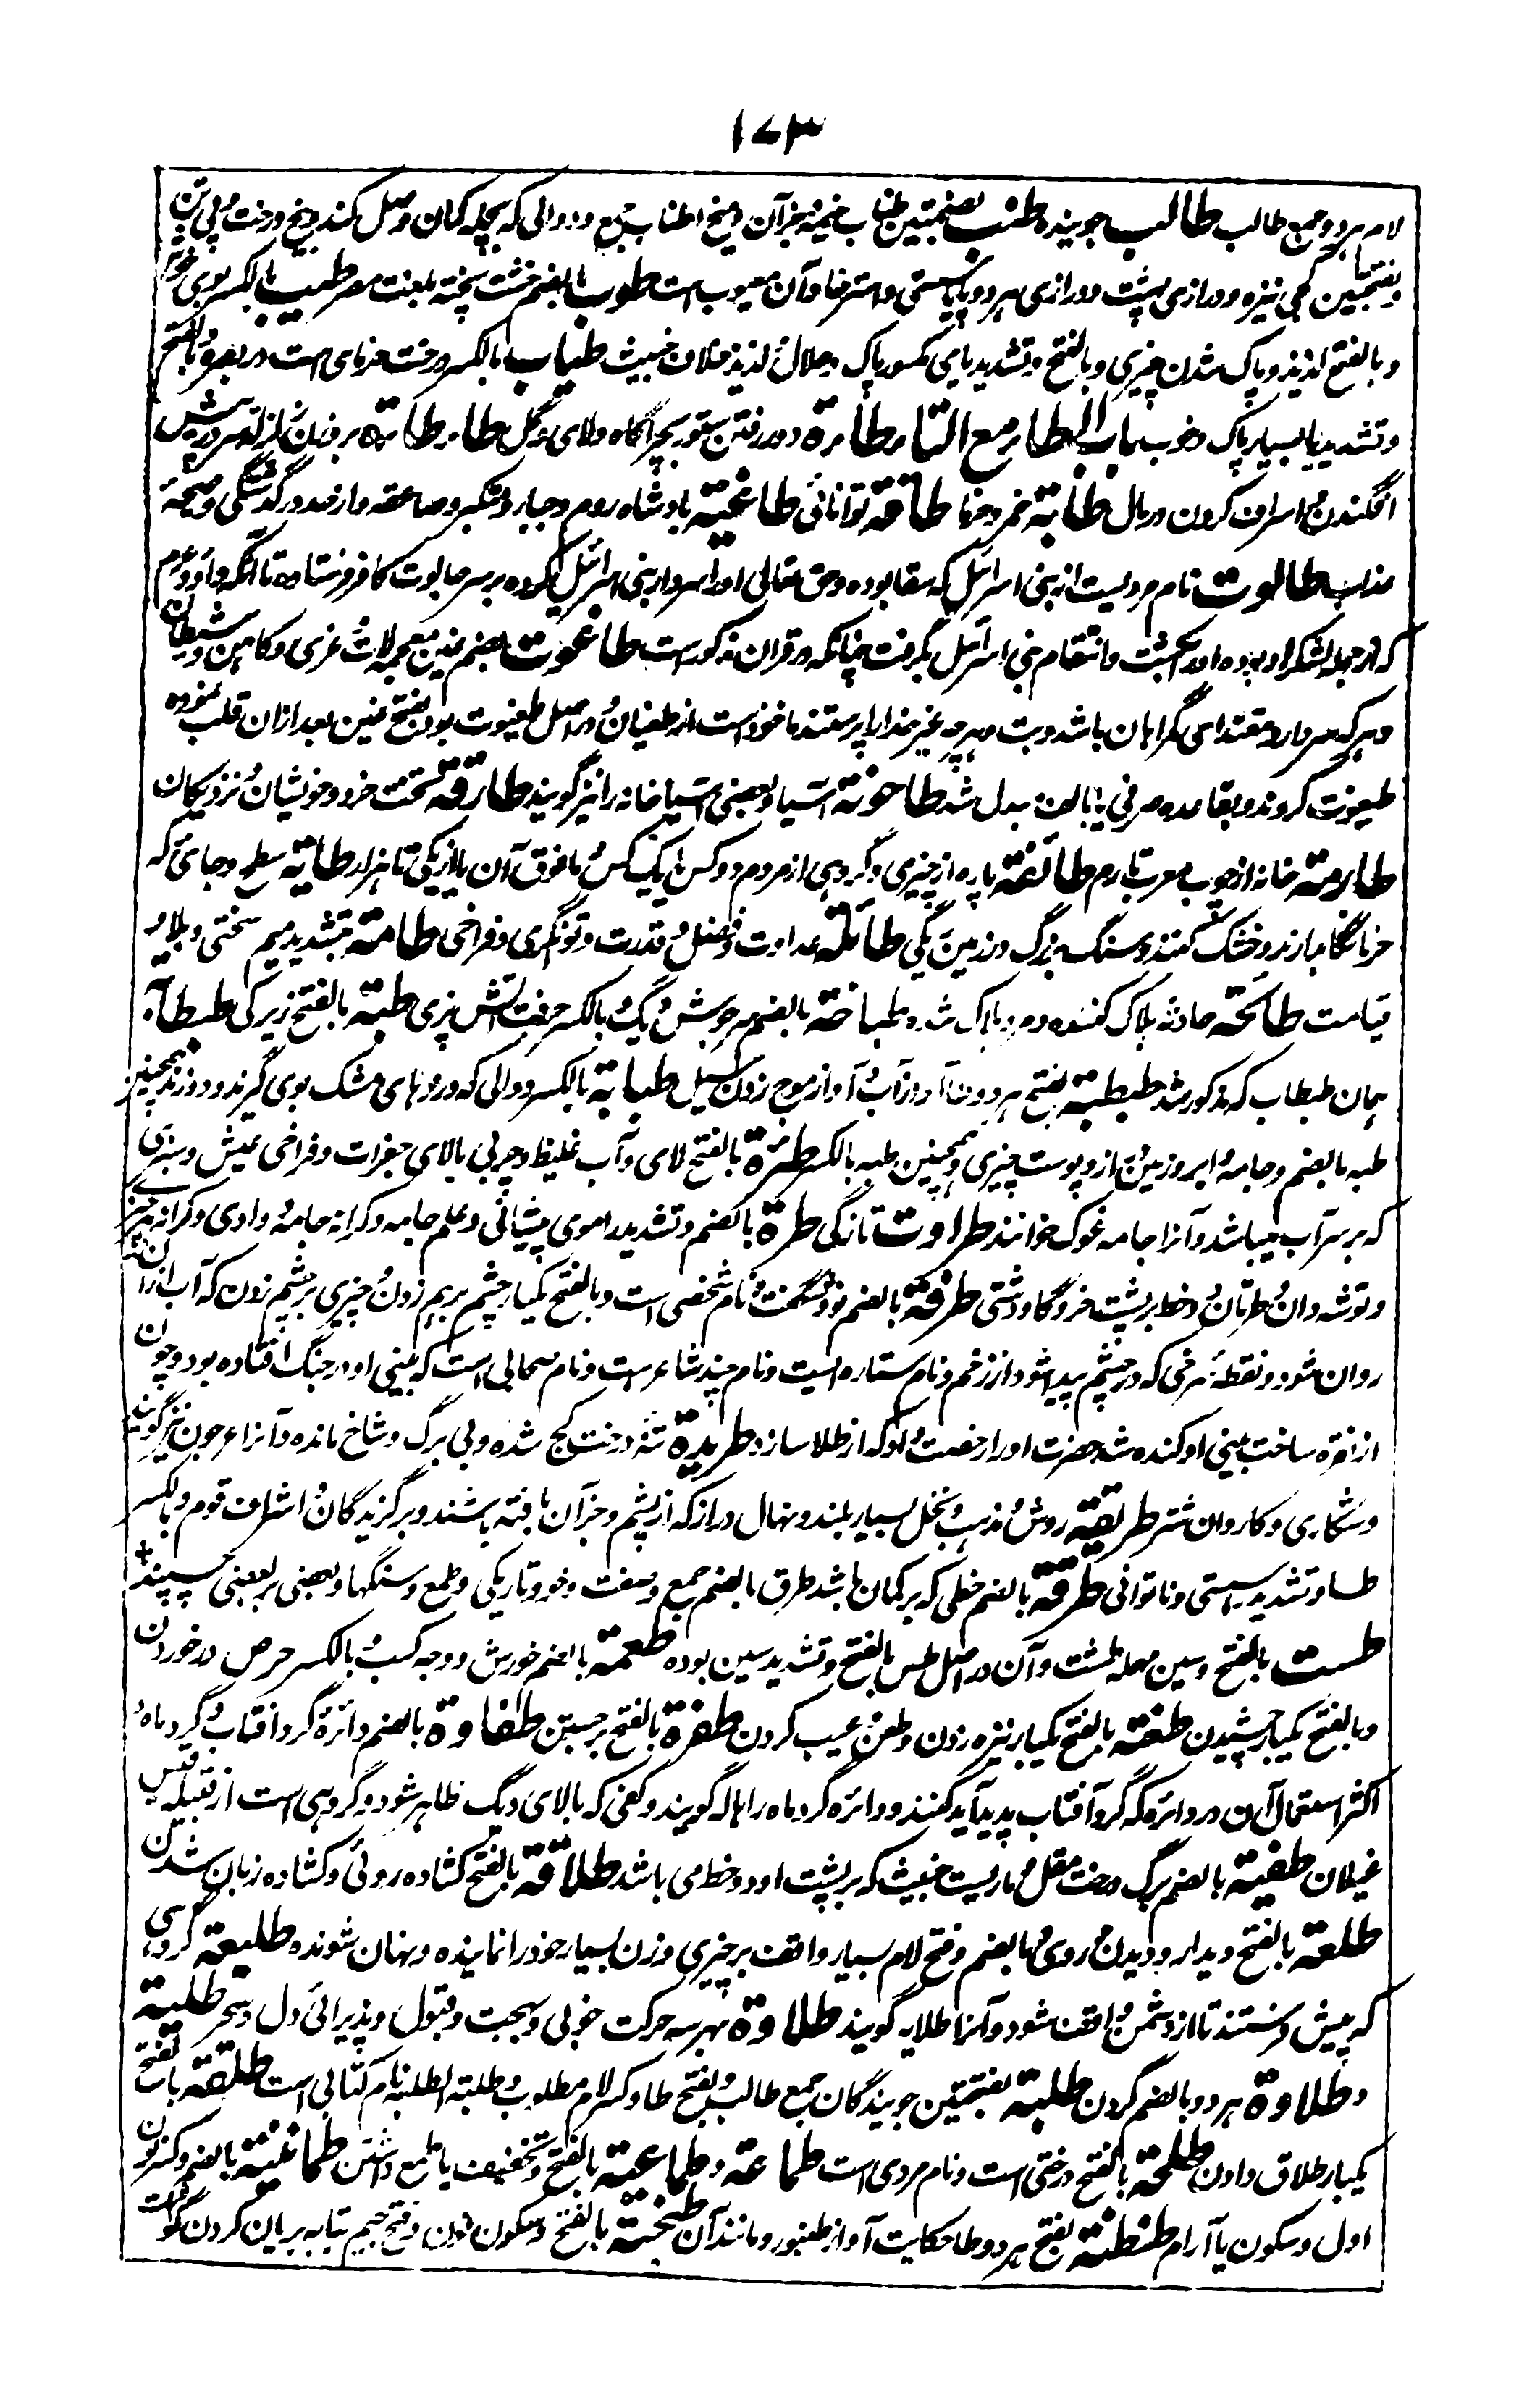 ١٧٣
لام هر دو جمع طالب طالب جوینده طنب بضمتین طناب خیمه و جز آن و میخ اطناب جمع و دوالی که بچله کمان وصل کنند و بیخ درخت و پی تن
و بفتحتین کجی نیزه و درازی پشت و درازی هر دو پا با سستی و استرخا و آن معیوب است طوب بالضم خشت پخته بلغت مصر طیب بالکسر بوی خوش
و بالفتح لذیذ و پاک شدن چیزی و بالفتح و تشدید یای مکسور پاک و حلال و لذیذ خلاف خبیث طیاب بالکسر درخت خرمای است در بصره و بالفتح
و تشدید یا بسیار پاک و خوب باب الطا مع التا طائرة دور رفتن ستور بچراگاه ولای و گل
افگندن و اسراف کردن در مال طابة خمر و خرما طاقة توانائی طاغیة بادشاه روم و جبار و متکبر و صاعقه و از حد درگذشتگی و صیحهٔ
عذاب طالوت نام مردیست از بنی اسرائیل که سقا بوده و حق تعالی او را سردار بنی اسرائیل کرده بر سر جالوت کافر فرستاده تا آنکه داود ع م
که از جمله لشکر او بوده او را بکشت و انتقام بنی اسرائیل بگرفت چنانکه در قران مذکور است طاغوت بضم غین معجمه لات و عزی و کاهن و شیطان
و هر که سردار و مقتدای گمراهان باشد و بت و هر چه غیر خدا را پرستند ماخوذ است از طغیان و در اصل طغیوت بود بفتح غین بعد ازان قلب نموده
طیغوت کردند و بقاعده صرفی یا بالف بدل شد طاحونة آسیا و بعضی آسیا خانه را نیز گویند طارقة تخت خرد و خویشان و نزدیکان
طارمة خانه از چوب معرب تارم طائفة پاره از چیزی و گروهی از مردم دو کس یا یک کس و مافوق آن یا از یکی تا هزار طایة سطح و جائی که
خرما نگاه بدارند و خشک کنند و سنگ بزرگ در زمین ریگی طائلة عداوت و فضل و قدرت و تونگری و فراخی طامة بتشدید میم سختی و بلا و
قیامت طائحة حادثه هلاک کننده و مرد هلاک شده طباخة بالضم سر جوش دیگ و بالکسر حرفت آتش پزی طبنة بالفتح زیرکی طبطابة
همان طبطاب که مذکور شد طبطبة بفتح هر دو طا آواز آب و آواز موج زدن سیل طبابة بالکسر دوالی که در زهای مشک بوی گیرند و دوزند همچنین
طبه بالضم و جامه و ابر و زمین دراز و پوست چیزی و همچنین طبه بالکسر طثرة بالفتح لای و آب غلیظ و چربی بالای جغرات و فراخی عیش و سبزی
که بر سر آب میباشد و آنرا جامه غوک خوانند طراوت تازگی طرة بالضم و تشدید را موی پیشانی و علم جامه و کرانه جامه و وادی و کرانه هر چیز
و توشه دان و طرتان دو خط بر پشت خر و گاو دشتی طرفة بالضم نو و شگفت و نام شخصی است و بالفتح یکبار چشم برهم زدن و چیزی بر چشم زدن که آب ازان
روان شود و نقطهٔ سرخی که در چشم پیدا شود از زخم و نام ستاره ایست و نام چند شاعر است و نام صحابی است که بینی او در جنگ افتاده بود و چون
از نقره ساخت بینی او کنده شد حضرت او را رخصت داد که از طلا سازد طریدة تنه درخت کج شده و بی برگ و شاخ مانده و آنرا عرجون نیز گویند
و شکاری و کاروان شتر طریقة روش و مذهب و نخل بسیار بلند و نهال دراز که از پشم و جز آن بافته باشند و برگزیدگان و اشراف قوم و بالکسر
طا و تشدید سستی و ناتوانی طرقة بالضم خطی که بر کمان باشد طرق بالضم جمع و صفت و خو و تاریکی و طمع و سنگها و بعضی بر بعضی چسپند
طست بالفتح و سین مهمله طشت و آن در اصل طس بالفتح و تشدید سین بوده طعمة بالضم خورش و وجه کسب و بالکسر حرص در خوردن
و بالفتح یکبار چشیدن طعنة بالفتح یکبار نیزه زدن و طعن و عیب کردن طفرة بالفتح برجستن طفاوة بالضم دائرهٔ گرد آفتاب و گرد ماه و
اکثر استعمال آن در دائره که گرد آفتاب پدید آید کنند و دائره گرد ماه را هاله گویند و کفی که بالای دیگ ظاهر شود و گروهی است از قبیله قیس
غیلان طفیة بالضم برگ درخت مقل و ماریست خبیث که بر پشت او دو خط می باشد طلاقة بالفتح کشاده روئی و کشاده زبان شدن
طلعة بالفتح دیدار و دیدن و روی و بالضم و فتح لام بسیار واقف بر چیزی و زن بسیار خود را نماینده و نهان شونده طلیعة گروهی
که پیش فرستند تا از دشمن واقف شود و آنرا طلایه گویند طلاوة بهر سه حرکت خوبی و بهجت و قبول و پذیرائی دل و سحر طلیة
و طلاوة هر دو بالضم گردن طلبة بفتحتین جویندگان جمع طالب و بفتح طا و کسر لام مطلوب و طلبة الطلبة نام کتابی است طلقة بالفتح
یکبار طلاق دادن طلحة بالفتح درختی است و نام مردی است طماعة و طماعیة بالفتح و تخفیف یا طمع داشتن طمانینة بالضم و کسر نون
اول و سکون یا آرام طنطنة بفتح هر دو طا حکایت آواز طنبور و مانند آن طنجة بالفتح و سکون نون و فتح جیم بتابه بریان کردن گوشت